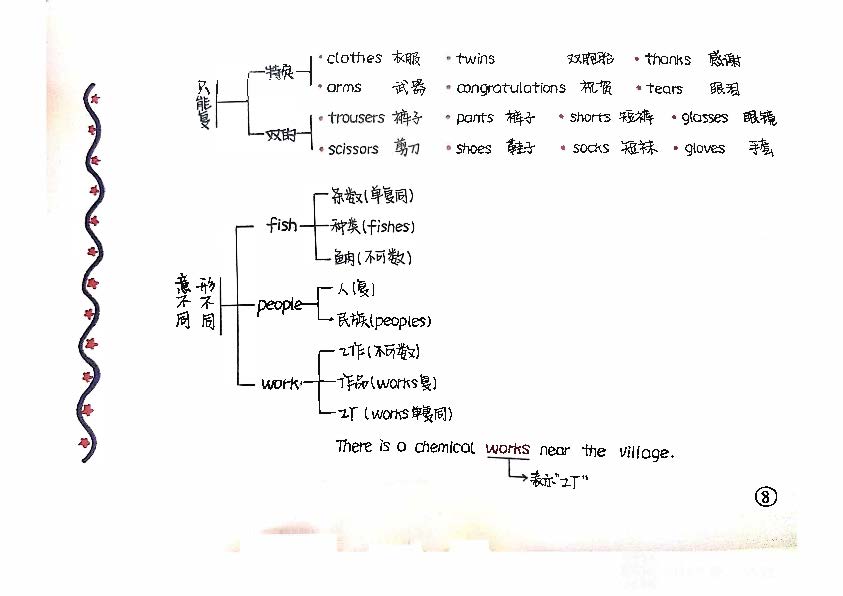 只能复
特殊
• clothes 衣服 • twins 双胞胎 • thanks 感谢
• arms 武器 • congratulations 祝贺 • tears 眼泪
双的
• trousers 裤子 • pants 裤子 • shorts 短裤 • glasses 眼镜
• scissors 剪刀 • shoes 鞋子 • socks 短袜 • gloves 手套
意不同 形不同
fish
条数(单复同)
种类(fishes)
鱼肉(不可数)
people
人(复)
民族(peoples)
work
工作(不可数)
作品(works复)
工厂(works单复同)
There is a chemical works near the village.
表示"工厂"
8